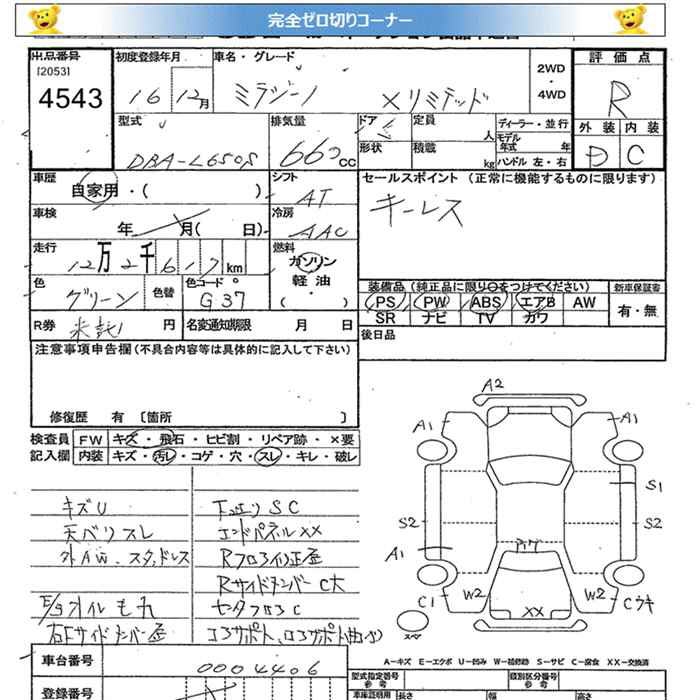 完全ゼロ切りコーナー
出品番号
[2053]
4543
初度登録年月
16 12月
車名・グレード
ミラジーノ Xリミテッド
2WD
・
4WD
評価点
R
外装 内装
D C
型式
DBA-L650S
排気量
660 CC
ドア
5
定員
人
形状
積載
kg
ディーラー・並行
モデル年式 年
ハンドル 左・右
車歴
自家用・( )
シフト
AT
セールスポイント (正常に機能するものに限ります)
キーレス
車検
年 月( 日)
冷房
AAC
走行
12万2千617km
燃料
ガソリン
軽油
( )
色
グリーン
色替
色コード
G37
装備品 (純正品に限り○をつけてください)
PS PW ABS エアB AW
SR ナビ TV カワ
新車保証書
有・無
R券
未託 円
名変通知期限 月 日
後日品
注意事項申告欄(不具合内容等は具体的に記入して下さい)
修復歴 有 [箇所 ]
検査員
記入欄
FW キズ・飛石・ヒビ割・リペア跡・×要
内装 キズ・汚レ・コゲ・穴・スレ・キレ・破レ
キズU
天ベリスレ
外AW、スタッドレス
E/gオイルもれ
下廻りSC
エンドパネルXX
Rフロア修正歪
RサイドメンバーC大
センタフロアC
A2
A1
A1
S1
S2
S2
A1
W2
W2
C1
Cウキ
XX
スペ
A−キズ E−エクボ U−凹み W−補修跡 S−サビ C−腐食 XX−交換済
車台番号
0004406
登録番号
型式指定番号
参考
類別区分番号
参考
車庫証明用
長さ
幅
高さ